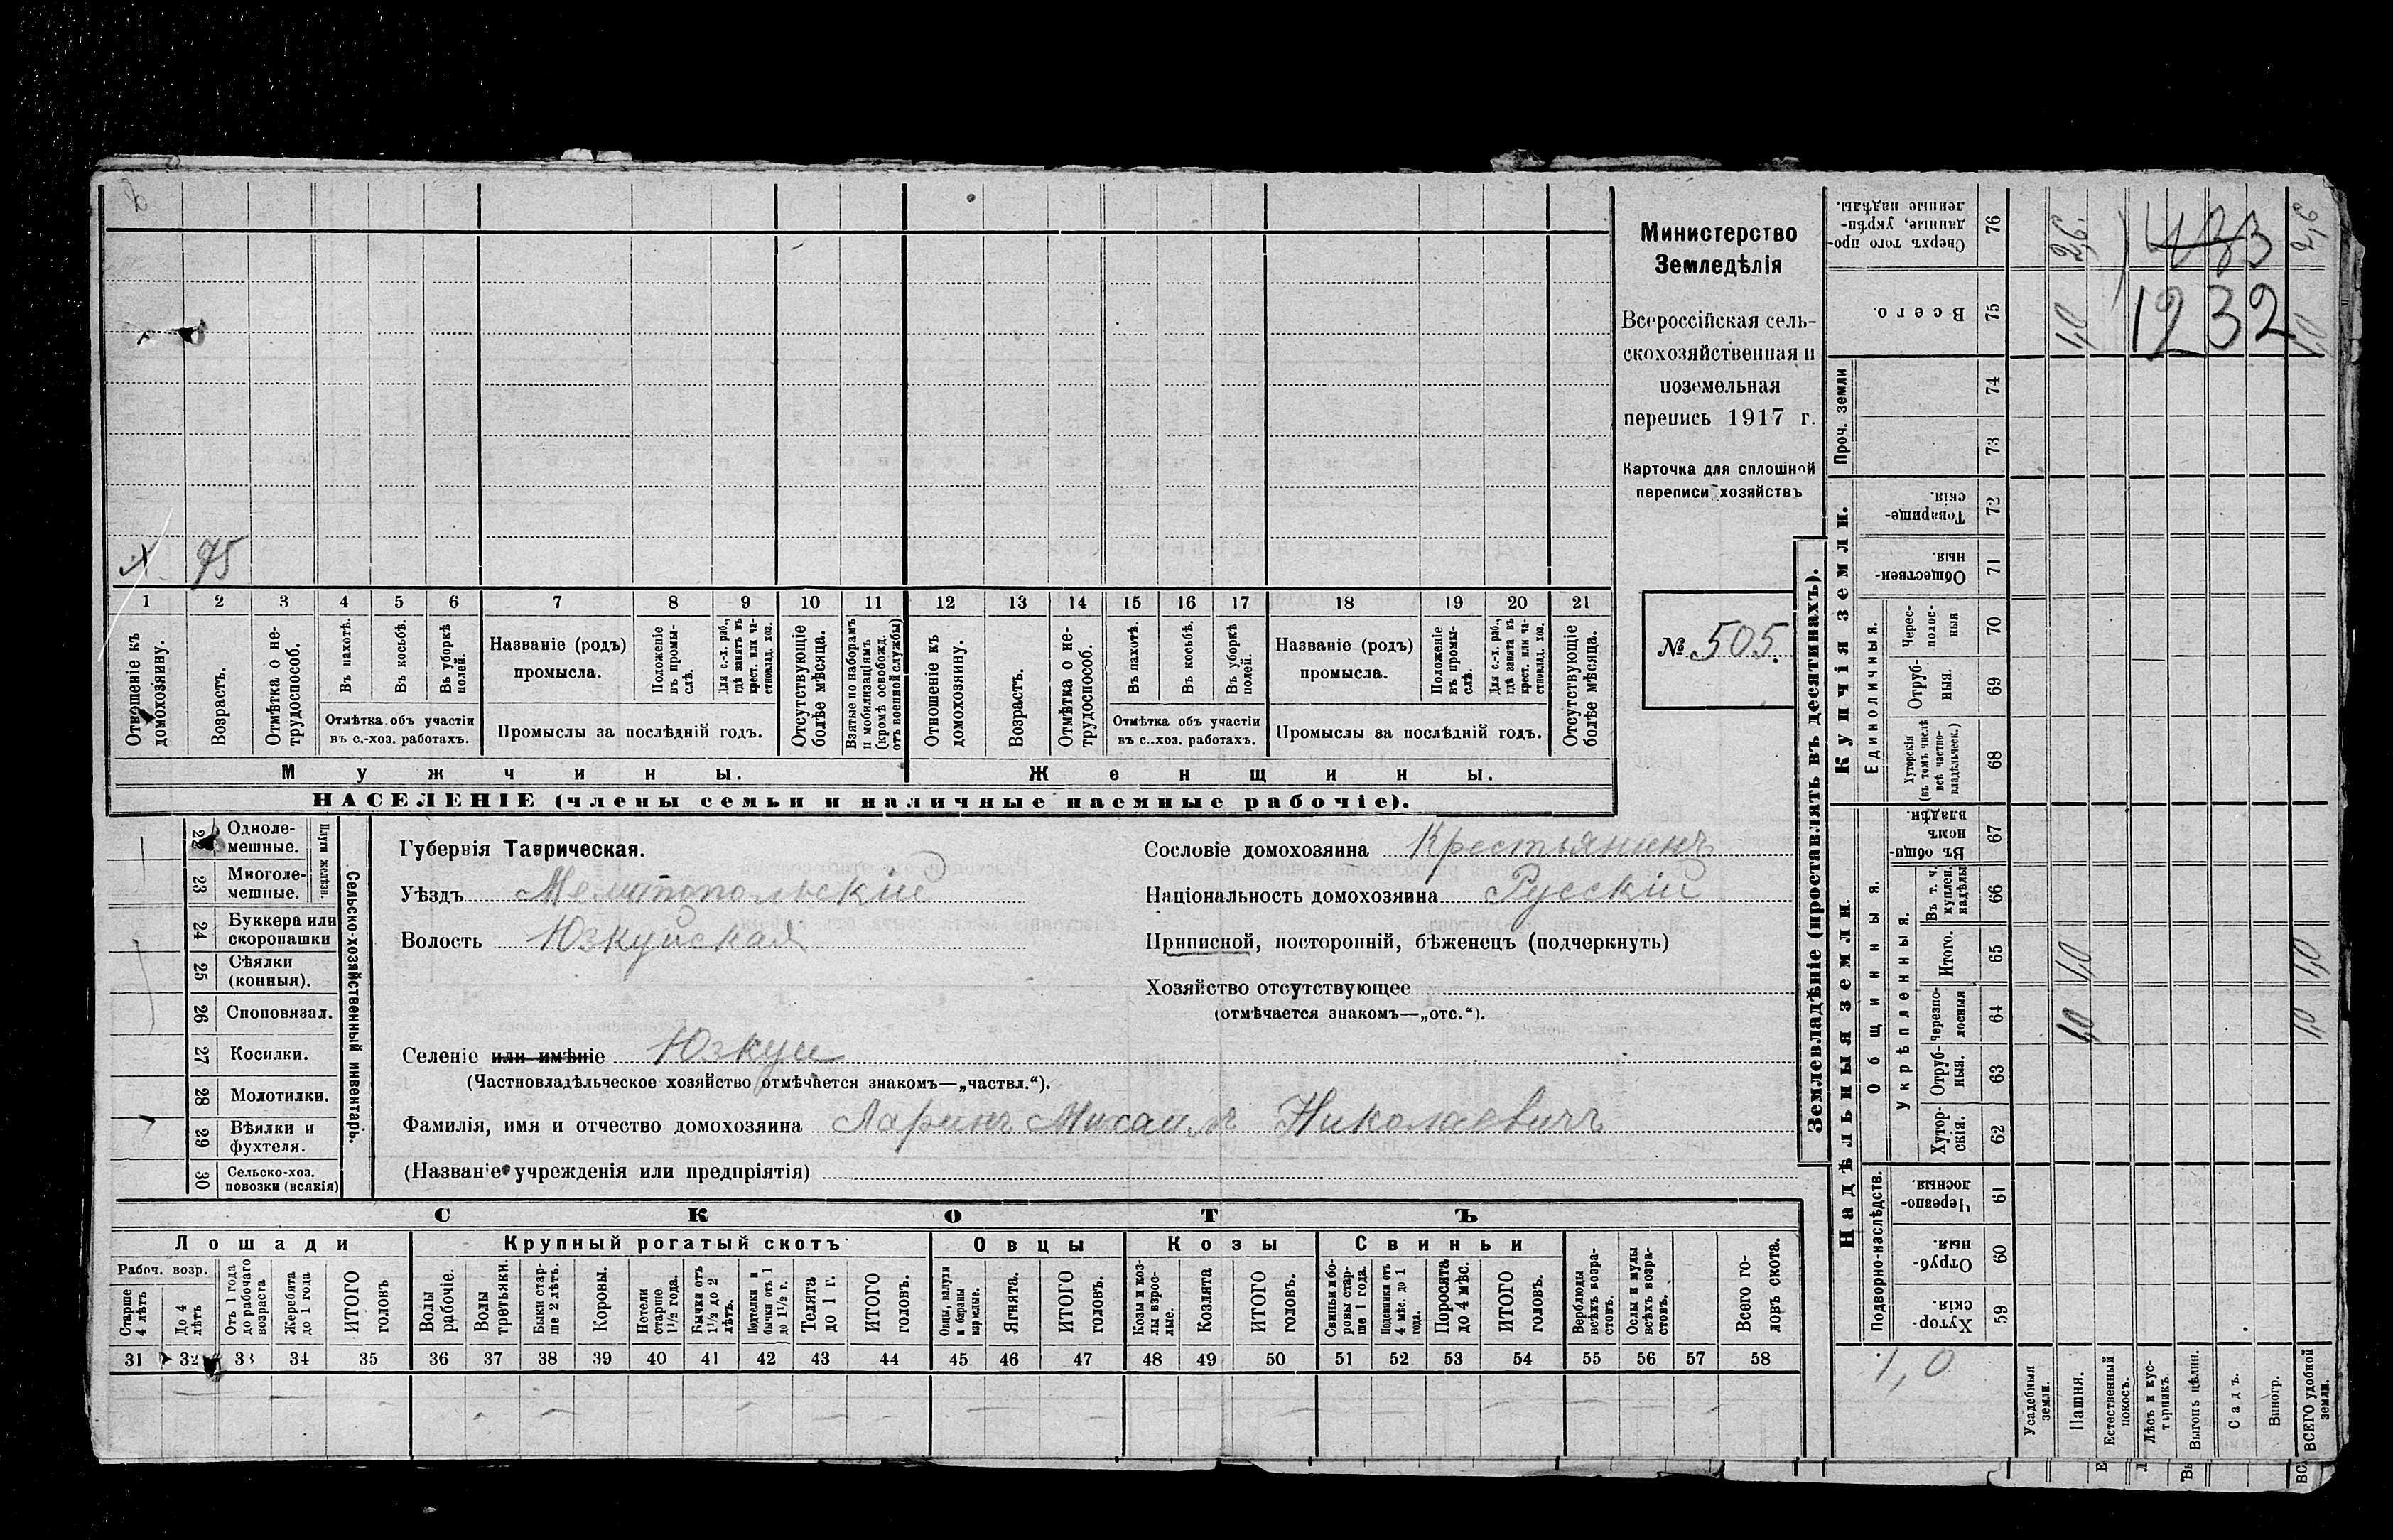 Х 75
1 2 3 4 5 6 7 8 9 10 11 12 13 14 15 16 17 18 19 20 21
Отношеніе къ домохозяину.
Возрастъ.
Отмѣтка о нетрудоспособ.
Въ пахотѣ.
Въ косьбѣ.
Въ уборкѣ полей.
Отмѣтка объ участіи
въ с.-хоз. работахъ.
Названіе (родъ)
промысла.
Положеніе въ промыслѣ.
Для с.-х. раб., гдѣ занятъ въ крест. или частновлад. хоз.
Промыслы за послѣдній годъ.
Отсутствующіе болѣе мѣсяца.
Взятые по наборамъ и мобилизаціямъ (кромѣ освобожд. отъ военной службы)
Отношеніе къ домохозяину.
Возрастъ.
Отмѣтка о нетрудоспособ.
Въ пахотѣ.
Въ косьбѣ.
Въ уборкѣ полей.
Отмѣтка объ участіи
въ с.-хоз. работахъ.
Названіе (родъ)
промысла.
Положеніе въ промыслѣ.
Для с.-х. раб., гдѣ занята въ крест. или частновлад. хоз.
Промыслы за послѣдній годъ.
Отсутствующіе болѣе мѣсяца.
Мужчины.
Женщины.
НАСЕЛЕНІЕ (члены семьи и наличные наемные рабочіе).
Министерство
Земледѣлія
Всероссійская сель-
скохозяйственная и
поземельная
перепись 1917 г.
Карточка для сплошной
переписи хозяйствъ
№ 505.
22 Одноле-
мешные.
23 Многоле-
мешные.
Плуги желѣзн.
24 Буккера или
скоропашки
25 Сѣялки
(конныя).
26 Сноповязал.
27 Косилки.
28 Молотилки.
29 Вѣялки и
фухтеля.
30 Сельско-хоз.
повозки (всякія)
Сельско-хозяйственный инвентарь.
Губернія Таврическая.
Уѣздъ Мелитопольскій
Волость Юзкуйская
Селеніе или имѣніе Юзкуи
(Частновладѣльческое хозяйство отмѣчается знакомъ—„частвл.“).
Фамилія, имя и отчество домохозяина Ларинъ Михаилъ Николаевичъ
(Названіе учрежденія или предпріятія)
Сословіе домохозяина Крестьянинъ
Національность домохозяина Русскій
Приписной, посторонній, бѣженецъ (подчеркнуть)
Хозяйство отсутствующее
(отмѣчается знакомъ—„отс.“).
СКОТЪ
Лошади
Крупный рогатый скотъ
Овцы
Козы
Свиньи
Рабоч. возр.
Старше 4 лѣтъ
До 4 лѣтъ
Отъ 1 года до рабочаго возраста
Жеребята до 1 года
ИТОГО головъ
Волы рабочіе.
Волы третьяки.
Быки старше 2 лѣтъ.
Коровы.
Нетели старше 1½ года.
Бычки отъ 1½ до 2 лѣтъ.
Подтелки и бычки отъ 1 до 1½ г.
Телята до 1 г.
ИТОГО головъ.
Овцы, валухи и бараны взрослые.
Ягнята.
ИТОГО головъ.
Козы и козлы взрослые.
Козлята
ИТОГО головъ.
Свиньи и боровы старше 1 года.
Подсвинки отъ 4 мѣс. до 1 года.
Поросята до 4 мѣс.
ИТОГО головъ.
Верблюды всѣхъ возрастовъ.
Ослы и мулы всѣхъ возрастовъ.
Всего головъ скота.
31 32 33 34 35 36 37 38 39 40 41 42 43 44 45 46 47 48 49 50 51 52 53 54 55 56 57 58
Землевладѣніе (проставлять въ десятинахъ).
Сверхъ того проданные, укрѣпленные надѣлы. 76
Всего. 75
Проч. земли
74
73
Купчія земли.
Товарищескія. 72
Общественныя. 71
Единоличныя.
Чересполосныя 70
Отрубныя. 69
Хуторскія (въ томъ числѣ всѣ частновладѣльческ.) 68
Надѣльныя земли.
Общинныя.
Въ общинномъ владѣн. 67
Укрѣпленныя.
Въ т. ч. куплен. надѣлы 66
Итого. 65
Черезполосныя 64
Отрубныя. 63
Хуторскія. 62
Подворно-наслѣдств.
Черезполосныя. 61
Отрубныя. 60
Хуторскія 59
Усадебныя земли.
Пашня.
Естественный покосъ.
Лѣсъ и кустарникъ.
Выгонъ цѣлин.
Садъ.
Виногр.
ВСЕГО удобной земли.
2,6 433 2,6
1,0 1232 1,0
1,0 1,0
1,0 1,0
1,0